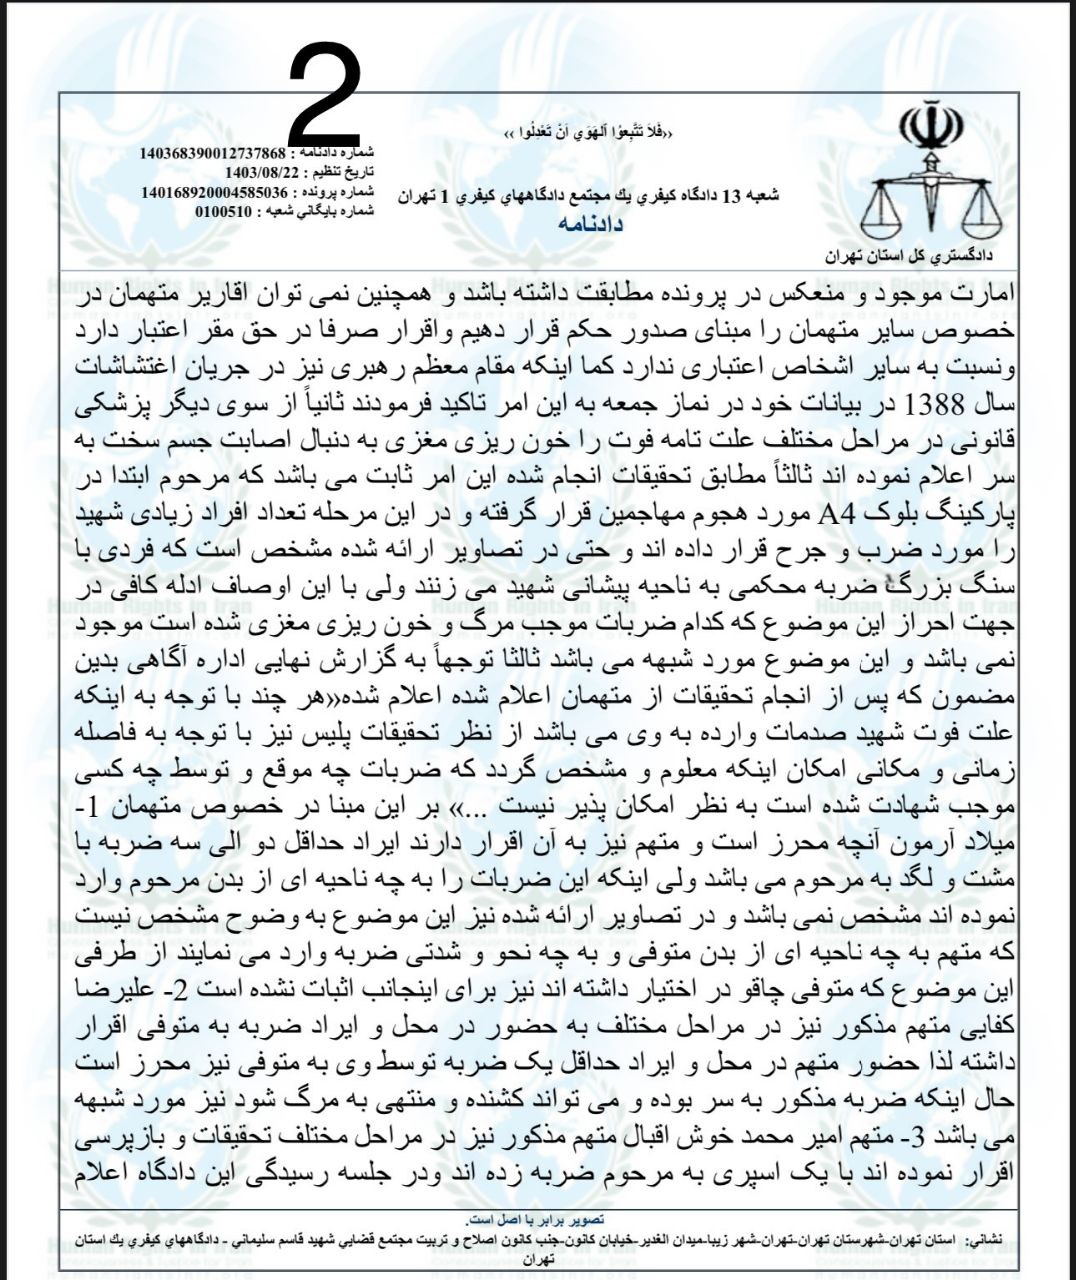 2
«فَلاَ تَتَّبِعوُا اَلهَوَي اَنْ تَعْدِلُوا »
شماره دادنامه : 140368390012737868
تاریخ تنظیم : 1403/08/22
شماره پرونده : 140168920004585036
شماره بایگاني شعبه : 0100510
شعبه 13 دادگاه کیفري یك مجتمع دادگاههاي کیفري 1 تهران
دادنامه
دادگستري کل استان تهران
امارت موجود و منعکس در پرونده مطابقت داشته باشد و همچنین نمی توان اقاریر متهمان در
خصوص سایر متهمان را مبنای صدور حکم قرار دهیم واقرار صرفا در حق مقر اعتبار دارد
ونسبت به سایر اشخاص اعتباری ندارد کما اینکه مقام معظم رهبری نیز در جریان اغتشاشات
سال 1388 در بیانات خود در نماز جمعه به این امر تاکید فرمودند ثانیاً از سوی دیگر پزشکی
قانونی در مراحل مختلف علت تامه فوت را خون ریزی مغزی به دنبال اصابت جسم سخت به
سر اعلام نموده اند ثالثاً مطابق تحقیقات انجام شده این امر ثابت می باشد که مرحوم ابتدا در
پارکینگ بلوک A4 مورد هجوم مهاجمین قرار گرفته و در این مرحله تعداد افراد زیادی شهید
را مورد ضرب و جرح قرار داده اند و حتی در تصاویر ارائه شده مشخص است که فردی با
سنگ بزرگ ضربه محکمی به ناحیه پیشانی شهید می زنند ولی با این اوصاف ادله کافی در
جهت احراز این موضوع که کدام ضربات موجب مرگ و خون ریزی مغزی شده است موجود
نمی باشد و این موضوع مورد شبهه می باشد ثالثا توجهاً به گزارش نهایی اداره آگاهی بدین
مضمون که پس از انجام تحقیقات از متهمان اعلام شده اعلام شده«هر چند با توجه به اینکه
علت فوت شهید صدمات وارده به وی می باشد از نظر تحقیقات پلیس نیز با توجه به فاصله
زمانی و مکانی امکان اینکه معلوم و مشخص گردد که ضربات چه موقع و توسط چه کسی
موجب شهادت شده است به نظر امکان پذیر نیست ...» بر این مبنا در خصوص متهمان 1-
میلاد آرمون آنچه محرز است و متهم نیز به آن اقرار دارند ایراد حداقل دو الی سه ضربه با
مشت و لگد به مرحوم می باشد ولی اینکه این ضربات را به چه ناحیه ای از بدن مرحوم وارد
نموده اند مشخص نمی باشد و در تصاویر ارائه شده نیز این موضوع به وضوح مشخص نیست
که متهم به چه ناحیه ای از بدن متوفی و به چه نحو و شدتی ضربه وارد می نمایند از طرفی
این موضوع که متوفی چاقو در اختیار داشته اند نیز برای اینجانب اثبات نشده است 2- علیرضا
کفایی متهم مذکور نیز در مراحل مختلف به حضور در محل و ایراد ضربه به متوفی اقرار
داشته لذا حضور متهم در محل و ایراد حداقل یک ضربه توسط وی به متوفی نیز محرز است
حال اینکه ضربه مذکور به سر بوده و می تواند کشنده و منتهی به مرگ شود نیز مورد شبهه
می باشد 3- متهم امیر محمد خوش اقبال متهم مذکور نیز در مراحل مختلف تحقیقات و بازپرسی
اقرار نموده اند با یک اسپری به مرحوم ضربه زده اند ودر جلسه رسیدگی این دادگاه اعلام
تصویر برابر با اصل است.
نشاني: استان تهران-شهرستان تهران-تهران-شهر زیبا-میدان الغدیر-خیابان کانون-جنب کانون اصلاح و تربیت مجتمع قضایي شهید قاسم سلیماني - دادگاههاي کیفري یك استان
تهران
Human Rights in Iran